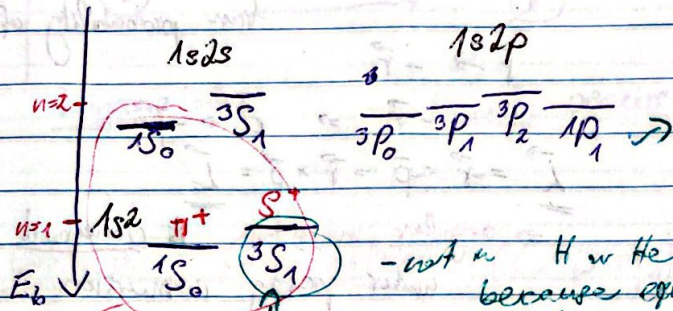 1s2s 1s2p
n=2 1S0 3S1 3P0 3P1 3P2 1P1
n=1 1s2 π+ S+
1S0 3S1 - not in H or He
Eb because